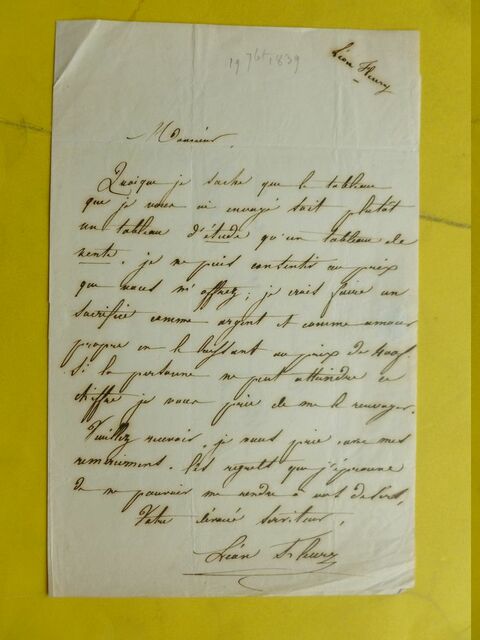 19 7bre 1839
Léon Fleury
Monsieur,
Quoique je sache que le tableau
que je vous ai envoyé soit plutot
un tableau d'étude qu'un tableau de
vente, je ne puis consentir au prix
que vous m'offrez; je crois faire un
sacrifice comme argent et comme amour
propre en le laissant au prix de 400f.
Si la personne ne peut atteindre ce
chiffre je vous prie de me le renvoyer.
Veuillez recevoir, je vous prie, avec mes
remerciments, les regrets que j'éprouve
de ne pouvoir me rendre à vos desirs,
Votre dévoué serviteur,
Léon Fleury